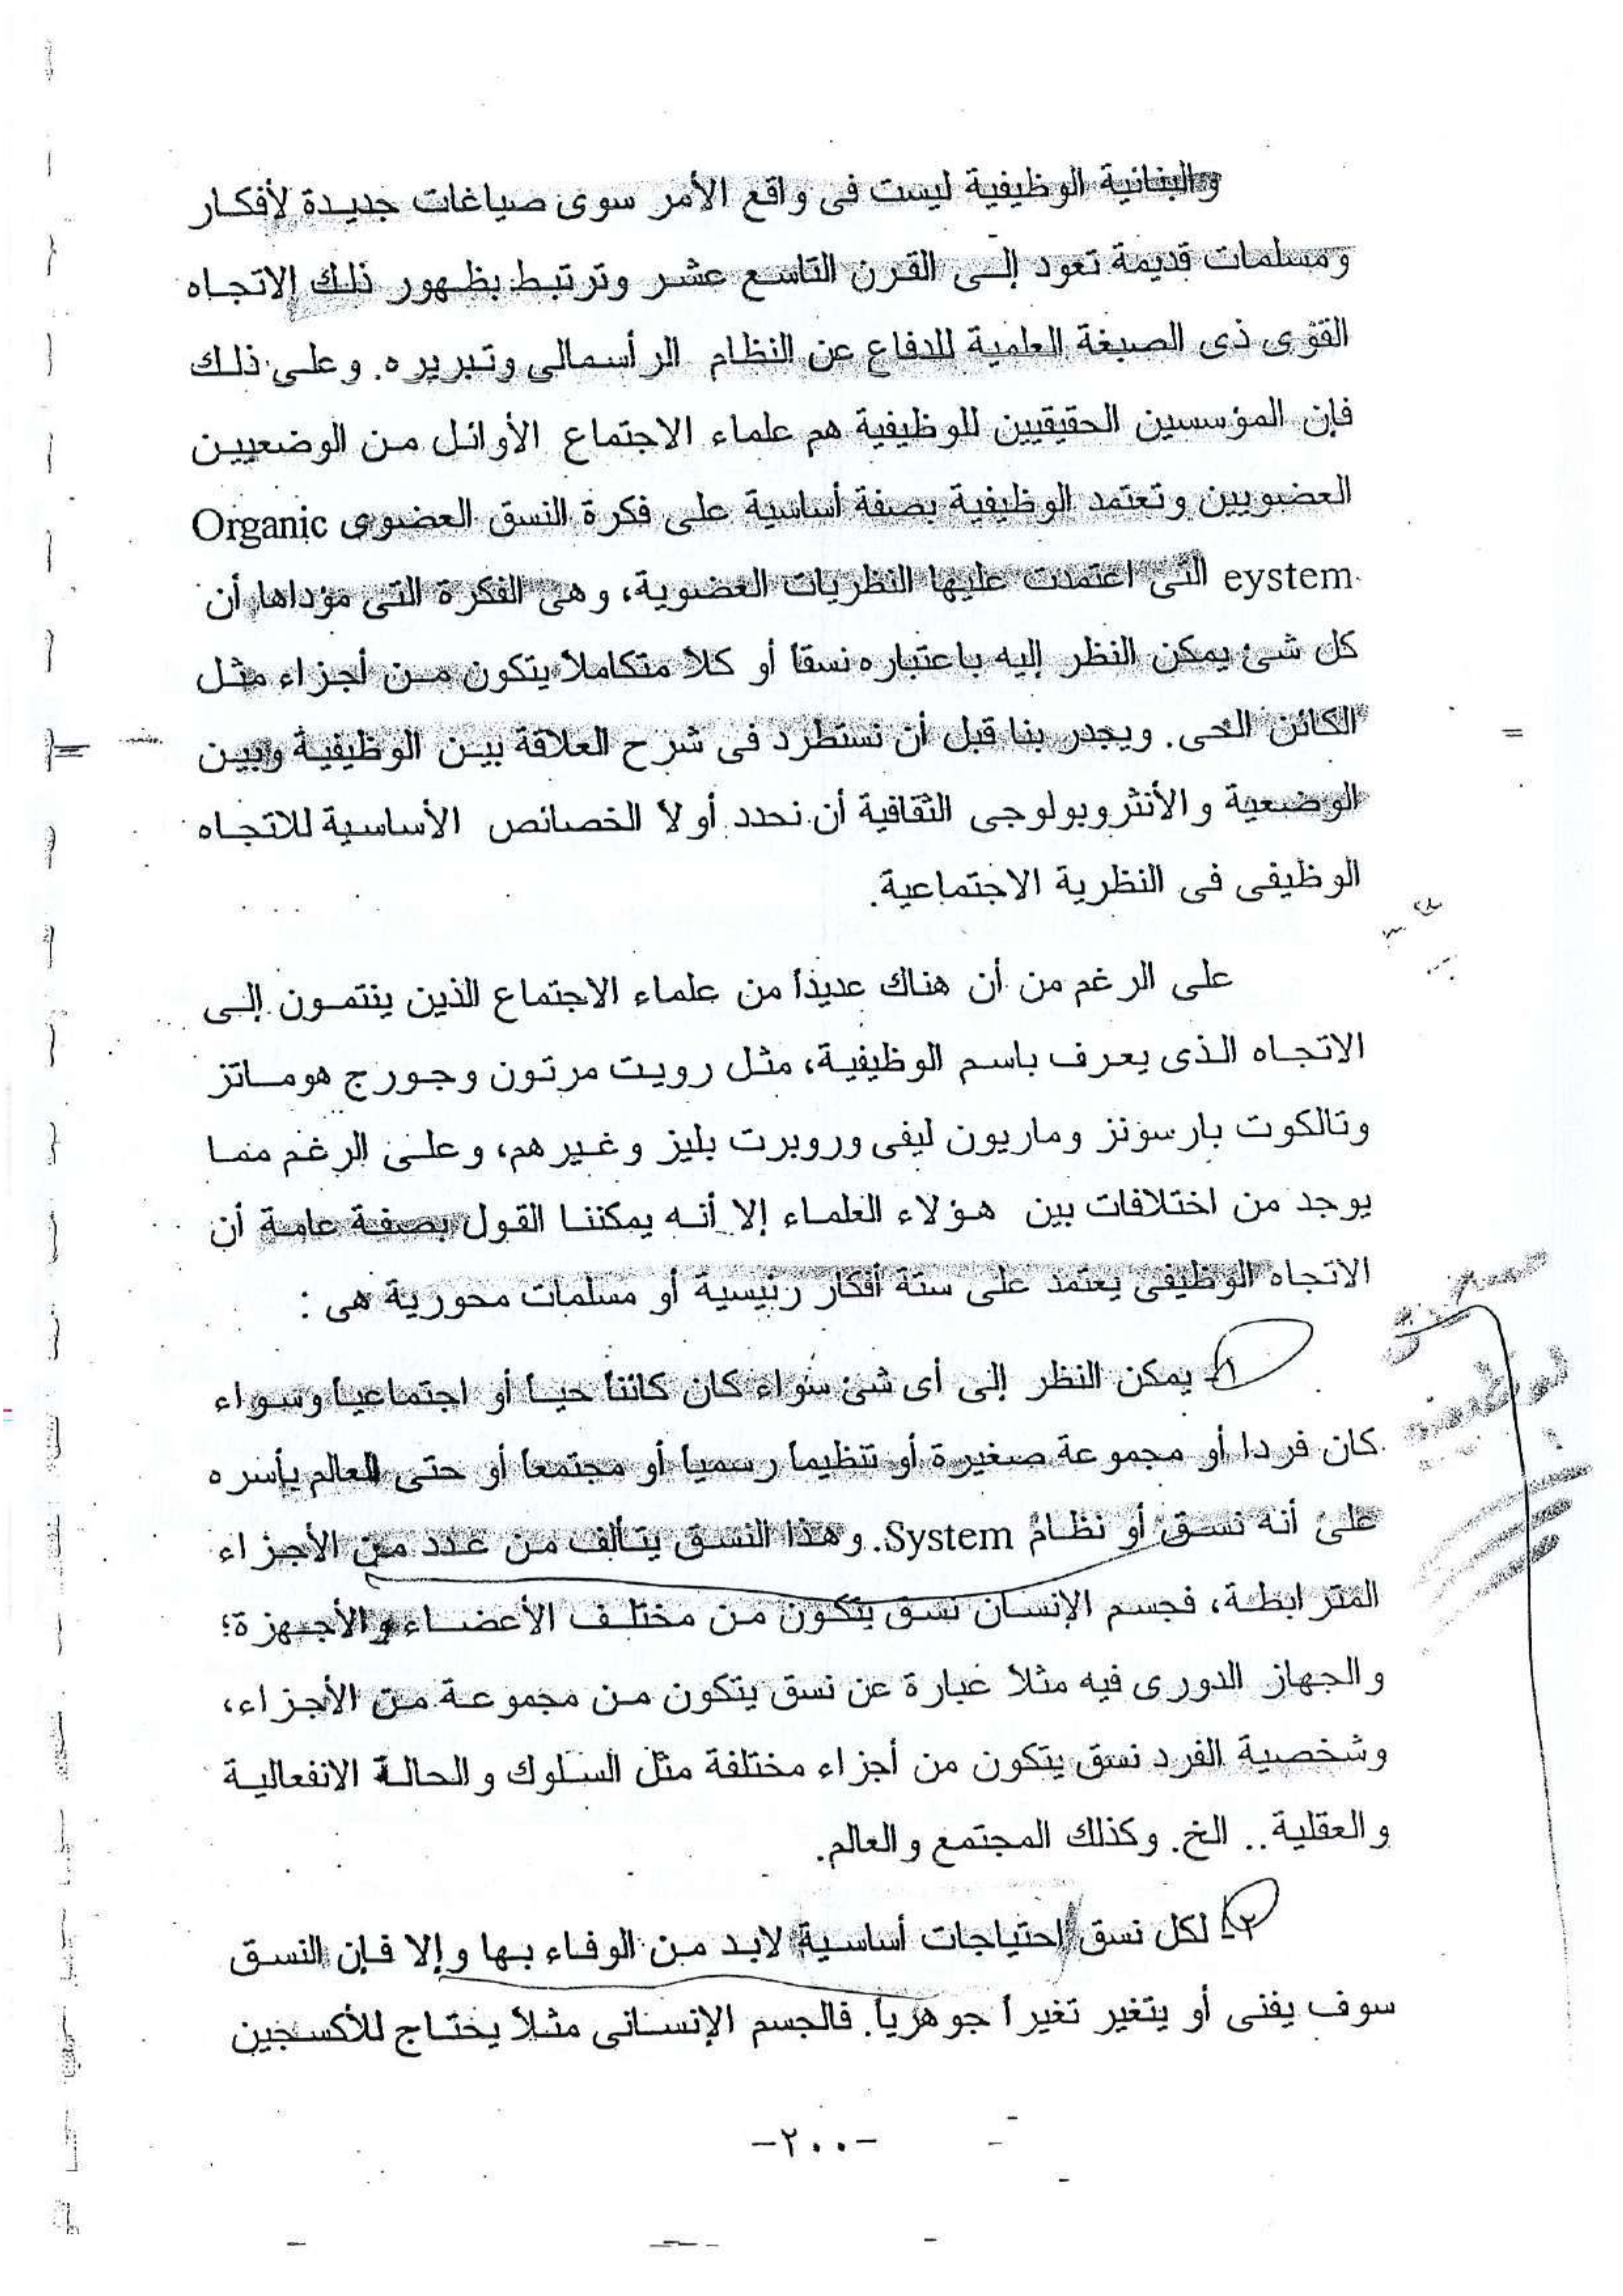 والبنائية الوظيفية ليست فى واقع الأمر سوى صياغات جديدة لأفكار
ومسلمات قديمة تعود إلى القرن التاسع عشر وترتبط بظهور ذلك الاتجاه
القوى ذى الصبغة العلمية للدفاع عن النظام الرأسمالى وتبريره. وعلى ذلك
فإن المؤسسين الحقيقيين للوظيفية هم علماء الاجتماع الأوائل من الوضعيين
العضويين وتعتمد الوظيفية بصفة أساسية على فكرة النسق العضوى Organic
eystem التى اعتمدت عليها النظريات العضوية، وهى الفكرة التى مؤداها أن
كل شئ يمكن النظر إليه باعتباره نسقا أو كلا متكاملا يتكون من أجزاء مثل
الكائن الحى. ويجدر بنا قبل أن نستطرد فى شرح العلاقة بين الوظيفية وبين
الوضعية والأنثروبولوجى الثقافية أن نحدد أولا الخصائص الأساسية للاتجاه
الوظيفى فى النظرية الاجتماعية.
على الرغم من أن هناك عديدا من علماء الاجتماع الذين ينتمون إلى
الاتجاه الذى يعرف باسم الوظيفية، مثل رويت مرتون وجورج هومانز
وتالكوت بارسونز وماريون ليفى وروبرت بليز وغيرهم، وعلى الرغم مما
يوجد من اختلافات بين هؤلاء العلماء إلا أنه يمكننا القول بصفة عامة أن
الاتجاه الوظيفى يعتمد على ستة أفكار رئيسية أو مسلمات محورية هى :
١- يمكن النظر إلى أى شئ سواء كان كائنا حيا أو اجتماعيا وسواء
كان فردا أو مجموعة صغيرة أو تنظيما رسميا أو مجتمعا أو حتى العالم بأسره
على أنه نسق أو نظام System. وهذا النسق يتألف من عدد من الأجزاء
المترابطة، فجسم الإنسان نسق يتكون من مختلف الأعضاء والأجهزة؛
والجهاز الدورى فيه مثلا عبارة عن نسق يتكون من مجموعة من الأجزاء،
وشخصية الفرد نسق يتكون من أجزاء مختلفة مثل السلوك والحالة الانفعالية
والعقلية.. الخ. وكذلك المجتمع والعالم.
٢- لكل نسق احتياجات أساسية لابد من الوفاء بها وإلا فإن النسق
سوف يفنى أو يتغير تغيرا جوهريا. فالجسم الإنسانى مثلا يحتاج للأكسجين
-٢٠٠-